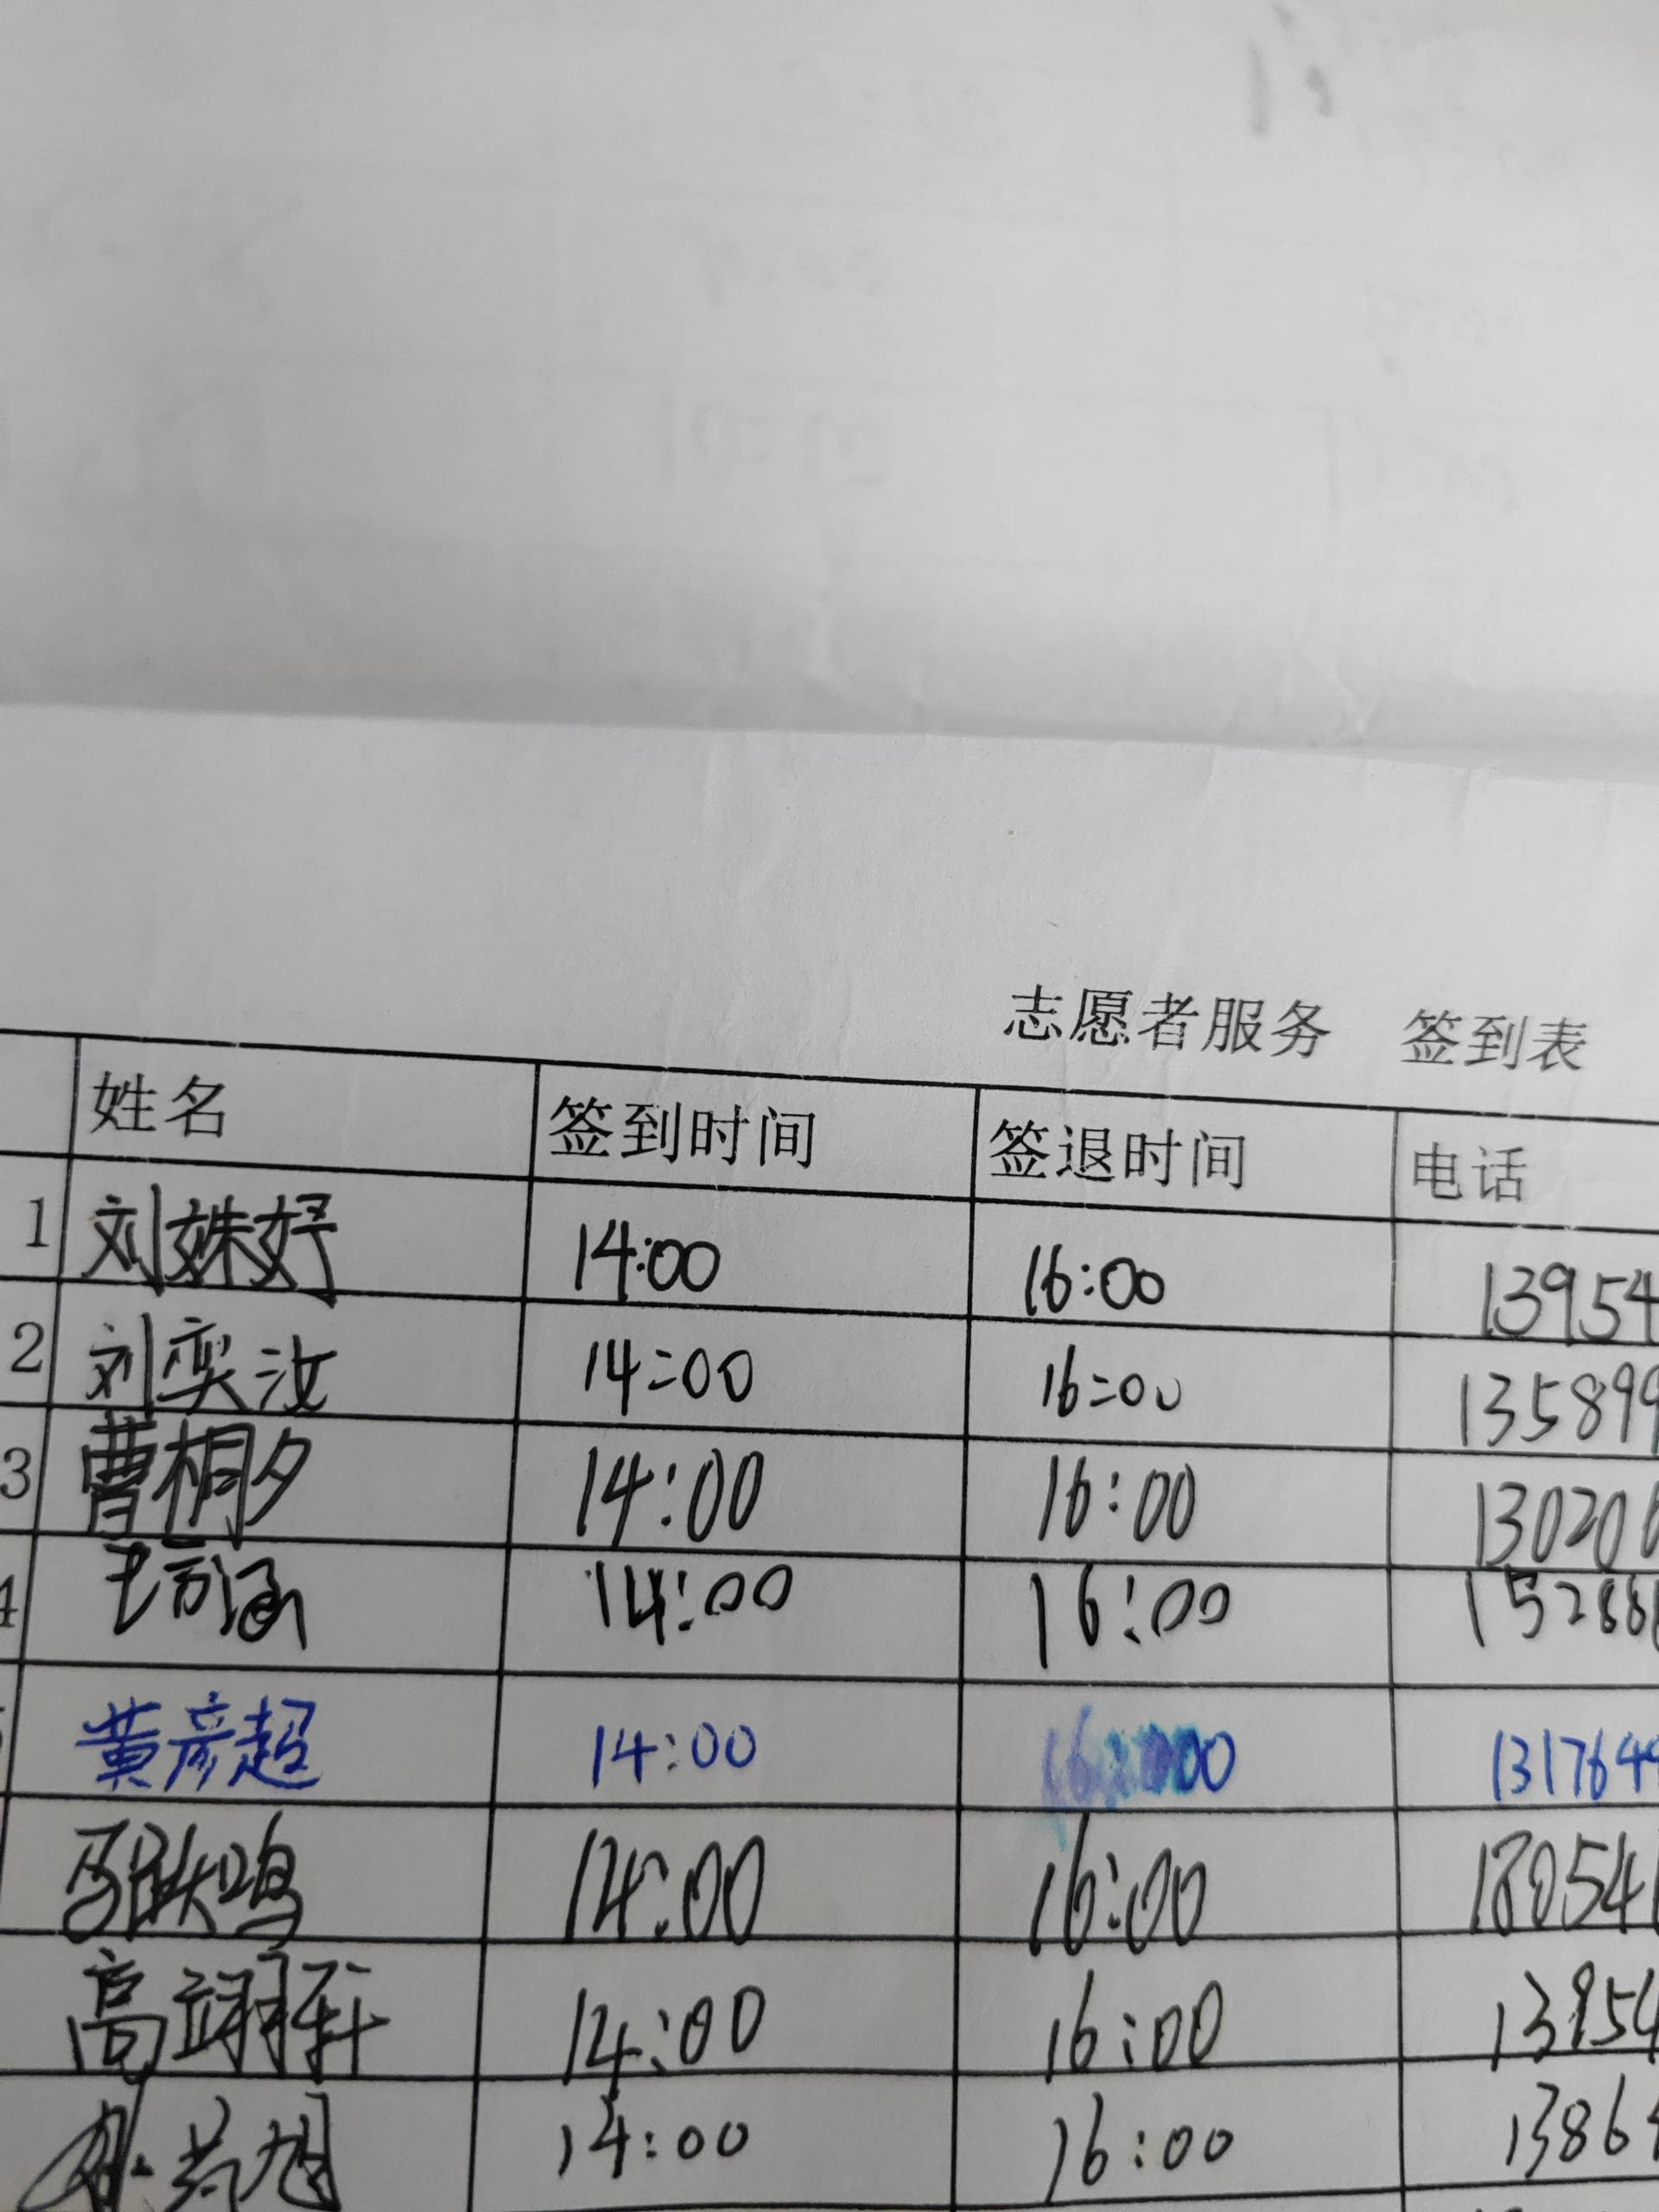 志愿者服务 签到表
姓名 签到时间 签退时间 电话
1 刘姝妤 14:00 16:00 13954
2 刘奕汝 14:00 16:00 135899
3 曹桐夕 14:00 16:00 130206
4 涵 14:00 16:00 15288
黄彦超 14:00 16:00 1317649
鸣 14:00 16:00 180541
高翊轩 14:00 16:00 13954
旭 14:00 16:00 13864